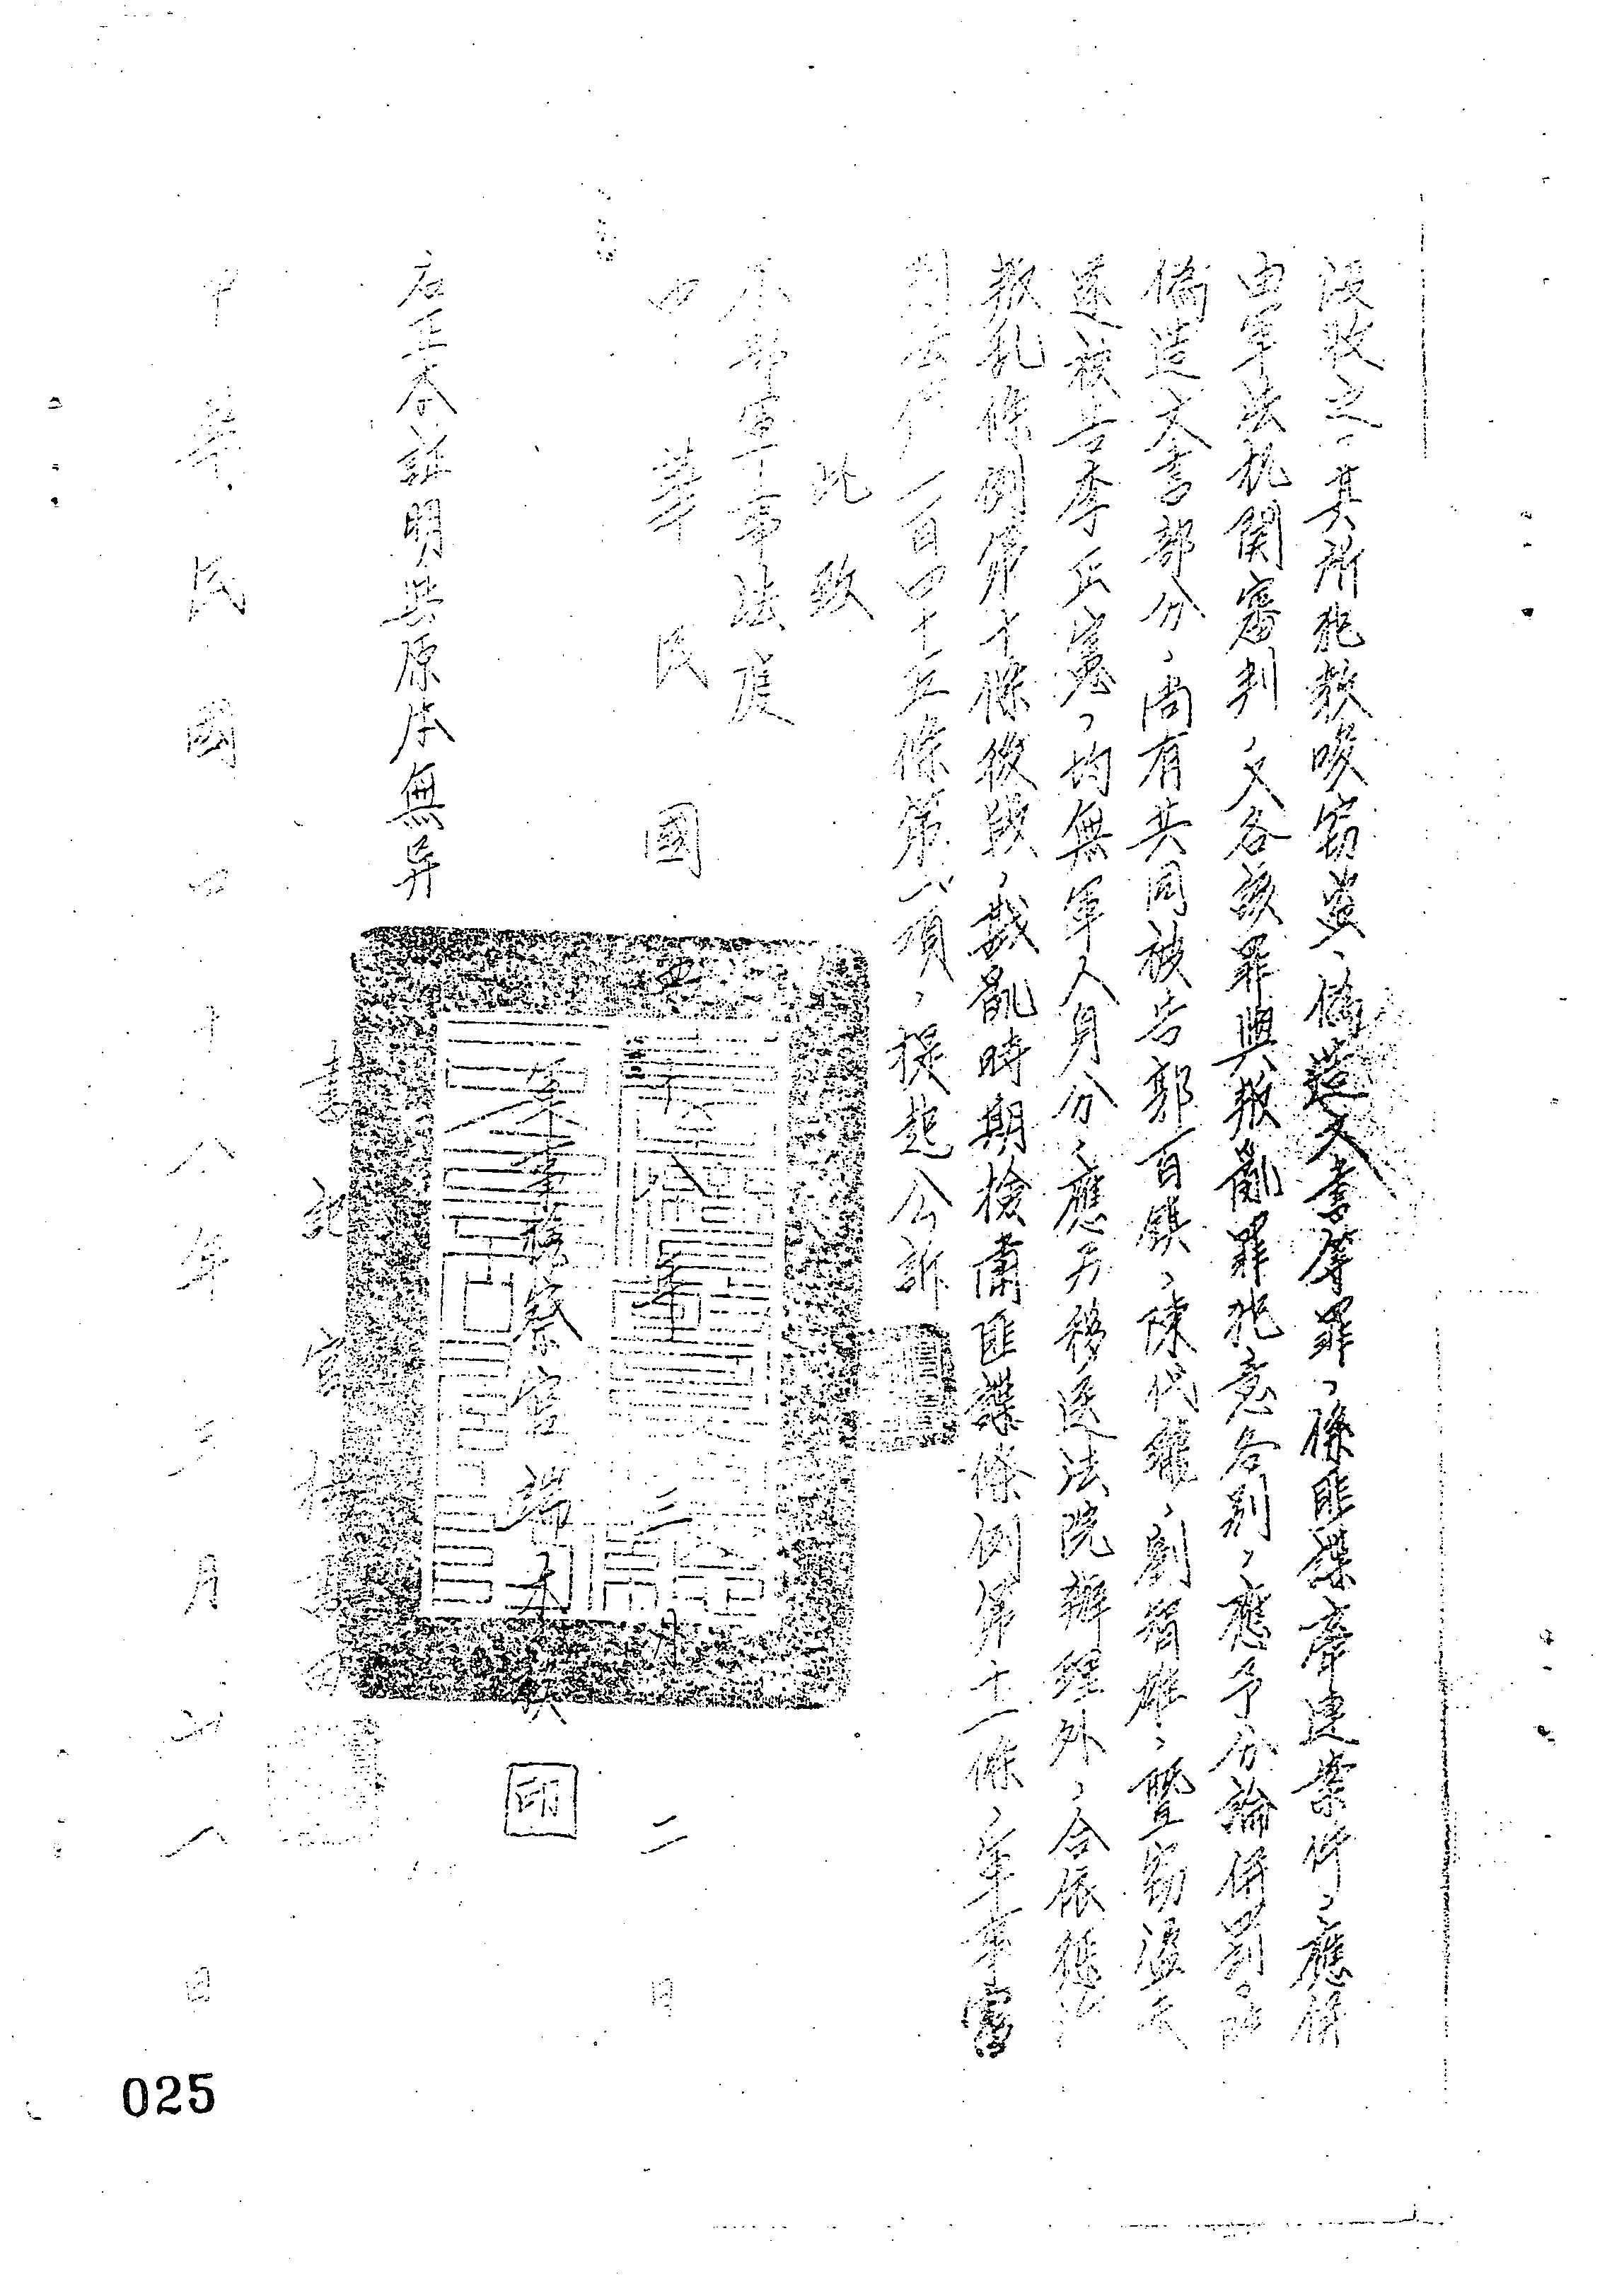 沒收之，其所犯教唆竊盜、偽造文書等罪，係匪諜牽連案件，應併
由軍法机関審判，又各該罪與叛亂罪犯意各別，應予分論併罰。除
偽造文書部分，尚有共同被告郭百鎮、陳代雄、劉智雄、暨竊盜文
遂被告李丘嵬，均無軍人身分，應另移送法院辦理外，合依懲治
叛乱條例第十條後段，戡亂時期檢肅匪諜條例第十一條，軍事審
判法第一百四十五條第一項，提起公訴
此致
本部軍事法庭
中華民國四十八年三月二日
軍事檢察官端木棪
印
右正本証明與原本無异
書記官
中華民國四十八年三月十八日
025